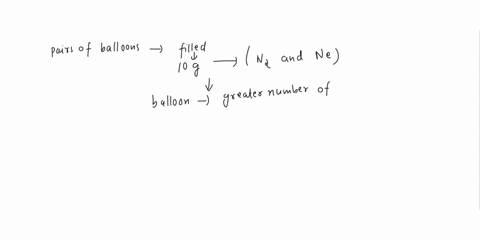 pairs of balloons → filled
↓
10 g → (N₂ and Ne)
↓
balloon → greater number of